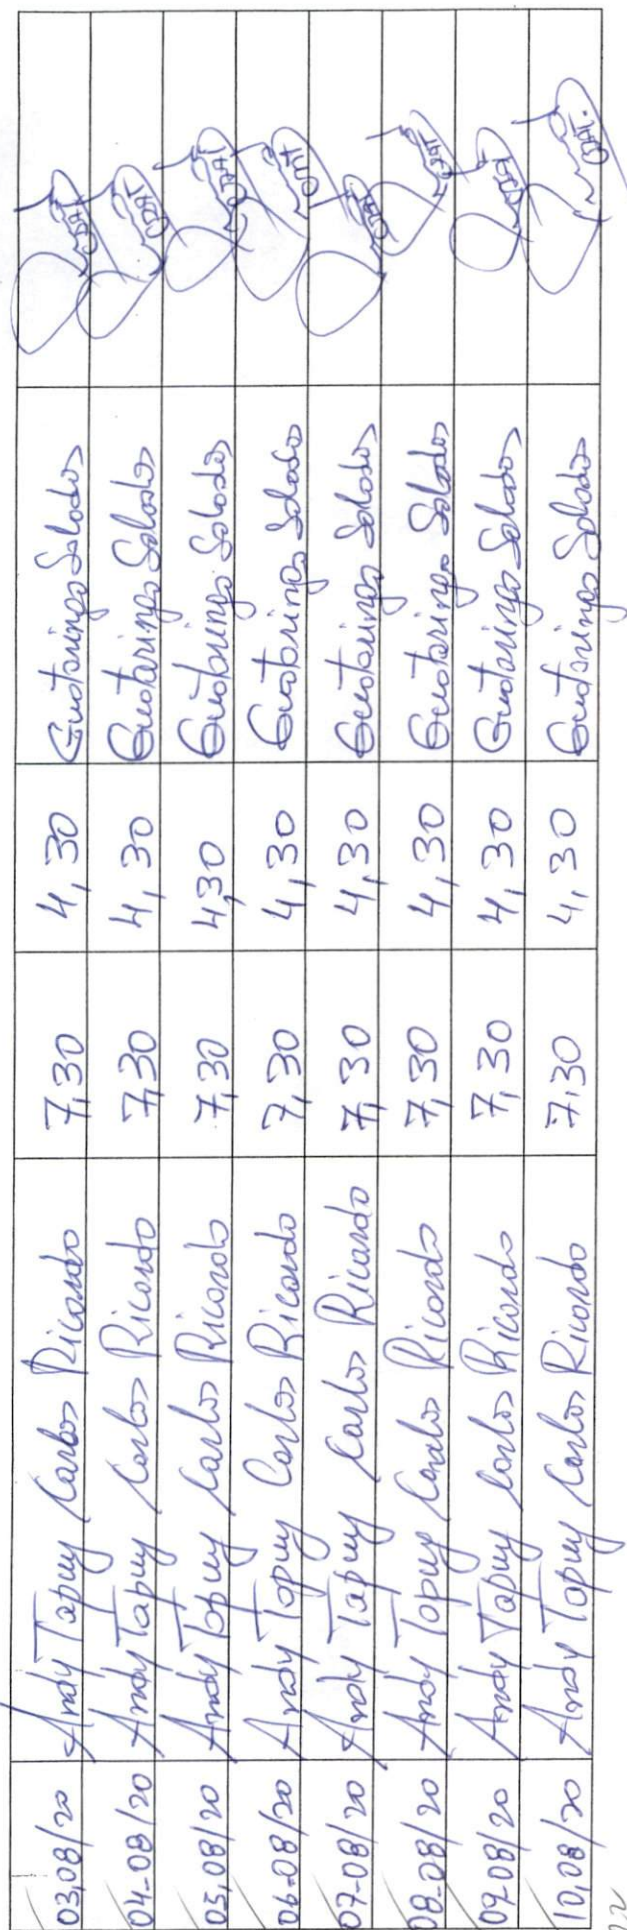 03,08/20 Andy Tapuy Carlos Ricardo 7,30 4,30 Guataringo Salados
04-08/20 Andy Tapuy Carlos Ricardo 7,30 4,30 Guataringo Salados
05,08/20 Andy Tapuy Carlos Ricardo 7,30 4,30 Guataringo Salados
06-08/20 Andy Tapuy Carlos Ricardo 7,30 4,30 Guataringo Salados
07-08/20 Andy Tapuy Carlos Ricardo 7,30 4,30 Guataringo Salados
08-08/20 Andy Tapuy Carlos Ricardo 7,30 4,30 Guataringo Salados
09-08/20 Andy Tapuy Carlos Ricardo 7,30 4,30 Guataringo Salados
10,08/20 Andy Tapuy Carlos Ricardo 7,30 4,30 Guataringo Salados